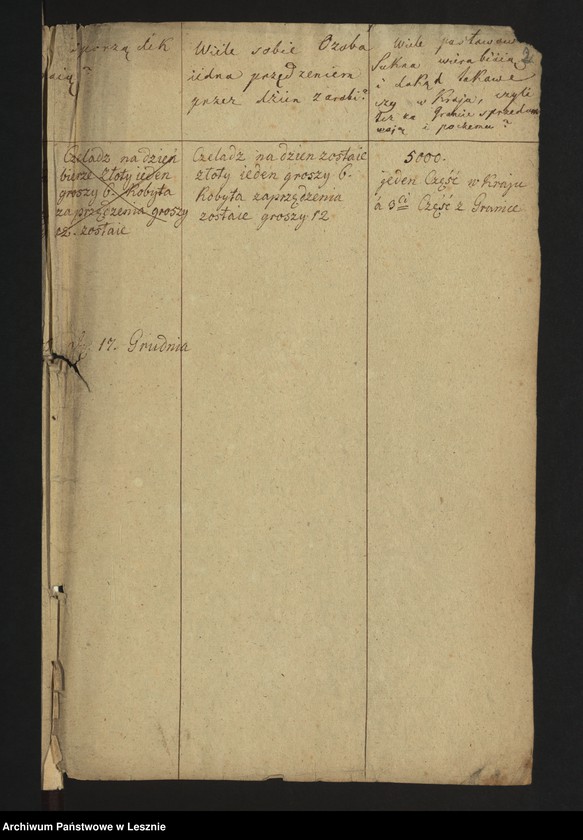 porządek
Wiele sobie Osoba
iedna przędzeniem
przez dzień zarobi?
Wiele postawów
Sukna wierabiiią
i dokąd takowe
czy w Kraju, czyli
też za Granice sprzedawaią
i poczemu?
2
Czeladz na dzień
bierze złoty ieden
groszy 6. Robyta
zaprzędzenia groszy
12. zostaie
Czeladz na dzien zostaie
złoty ieden groszy 6.
Robyta zaprzędzenia
zostaie groszy 12
5000.
jeden Część w Kraju
á 3ci Część z Granice
17. Grudnia
Archiwum Państwowe w Lesznie